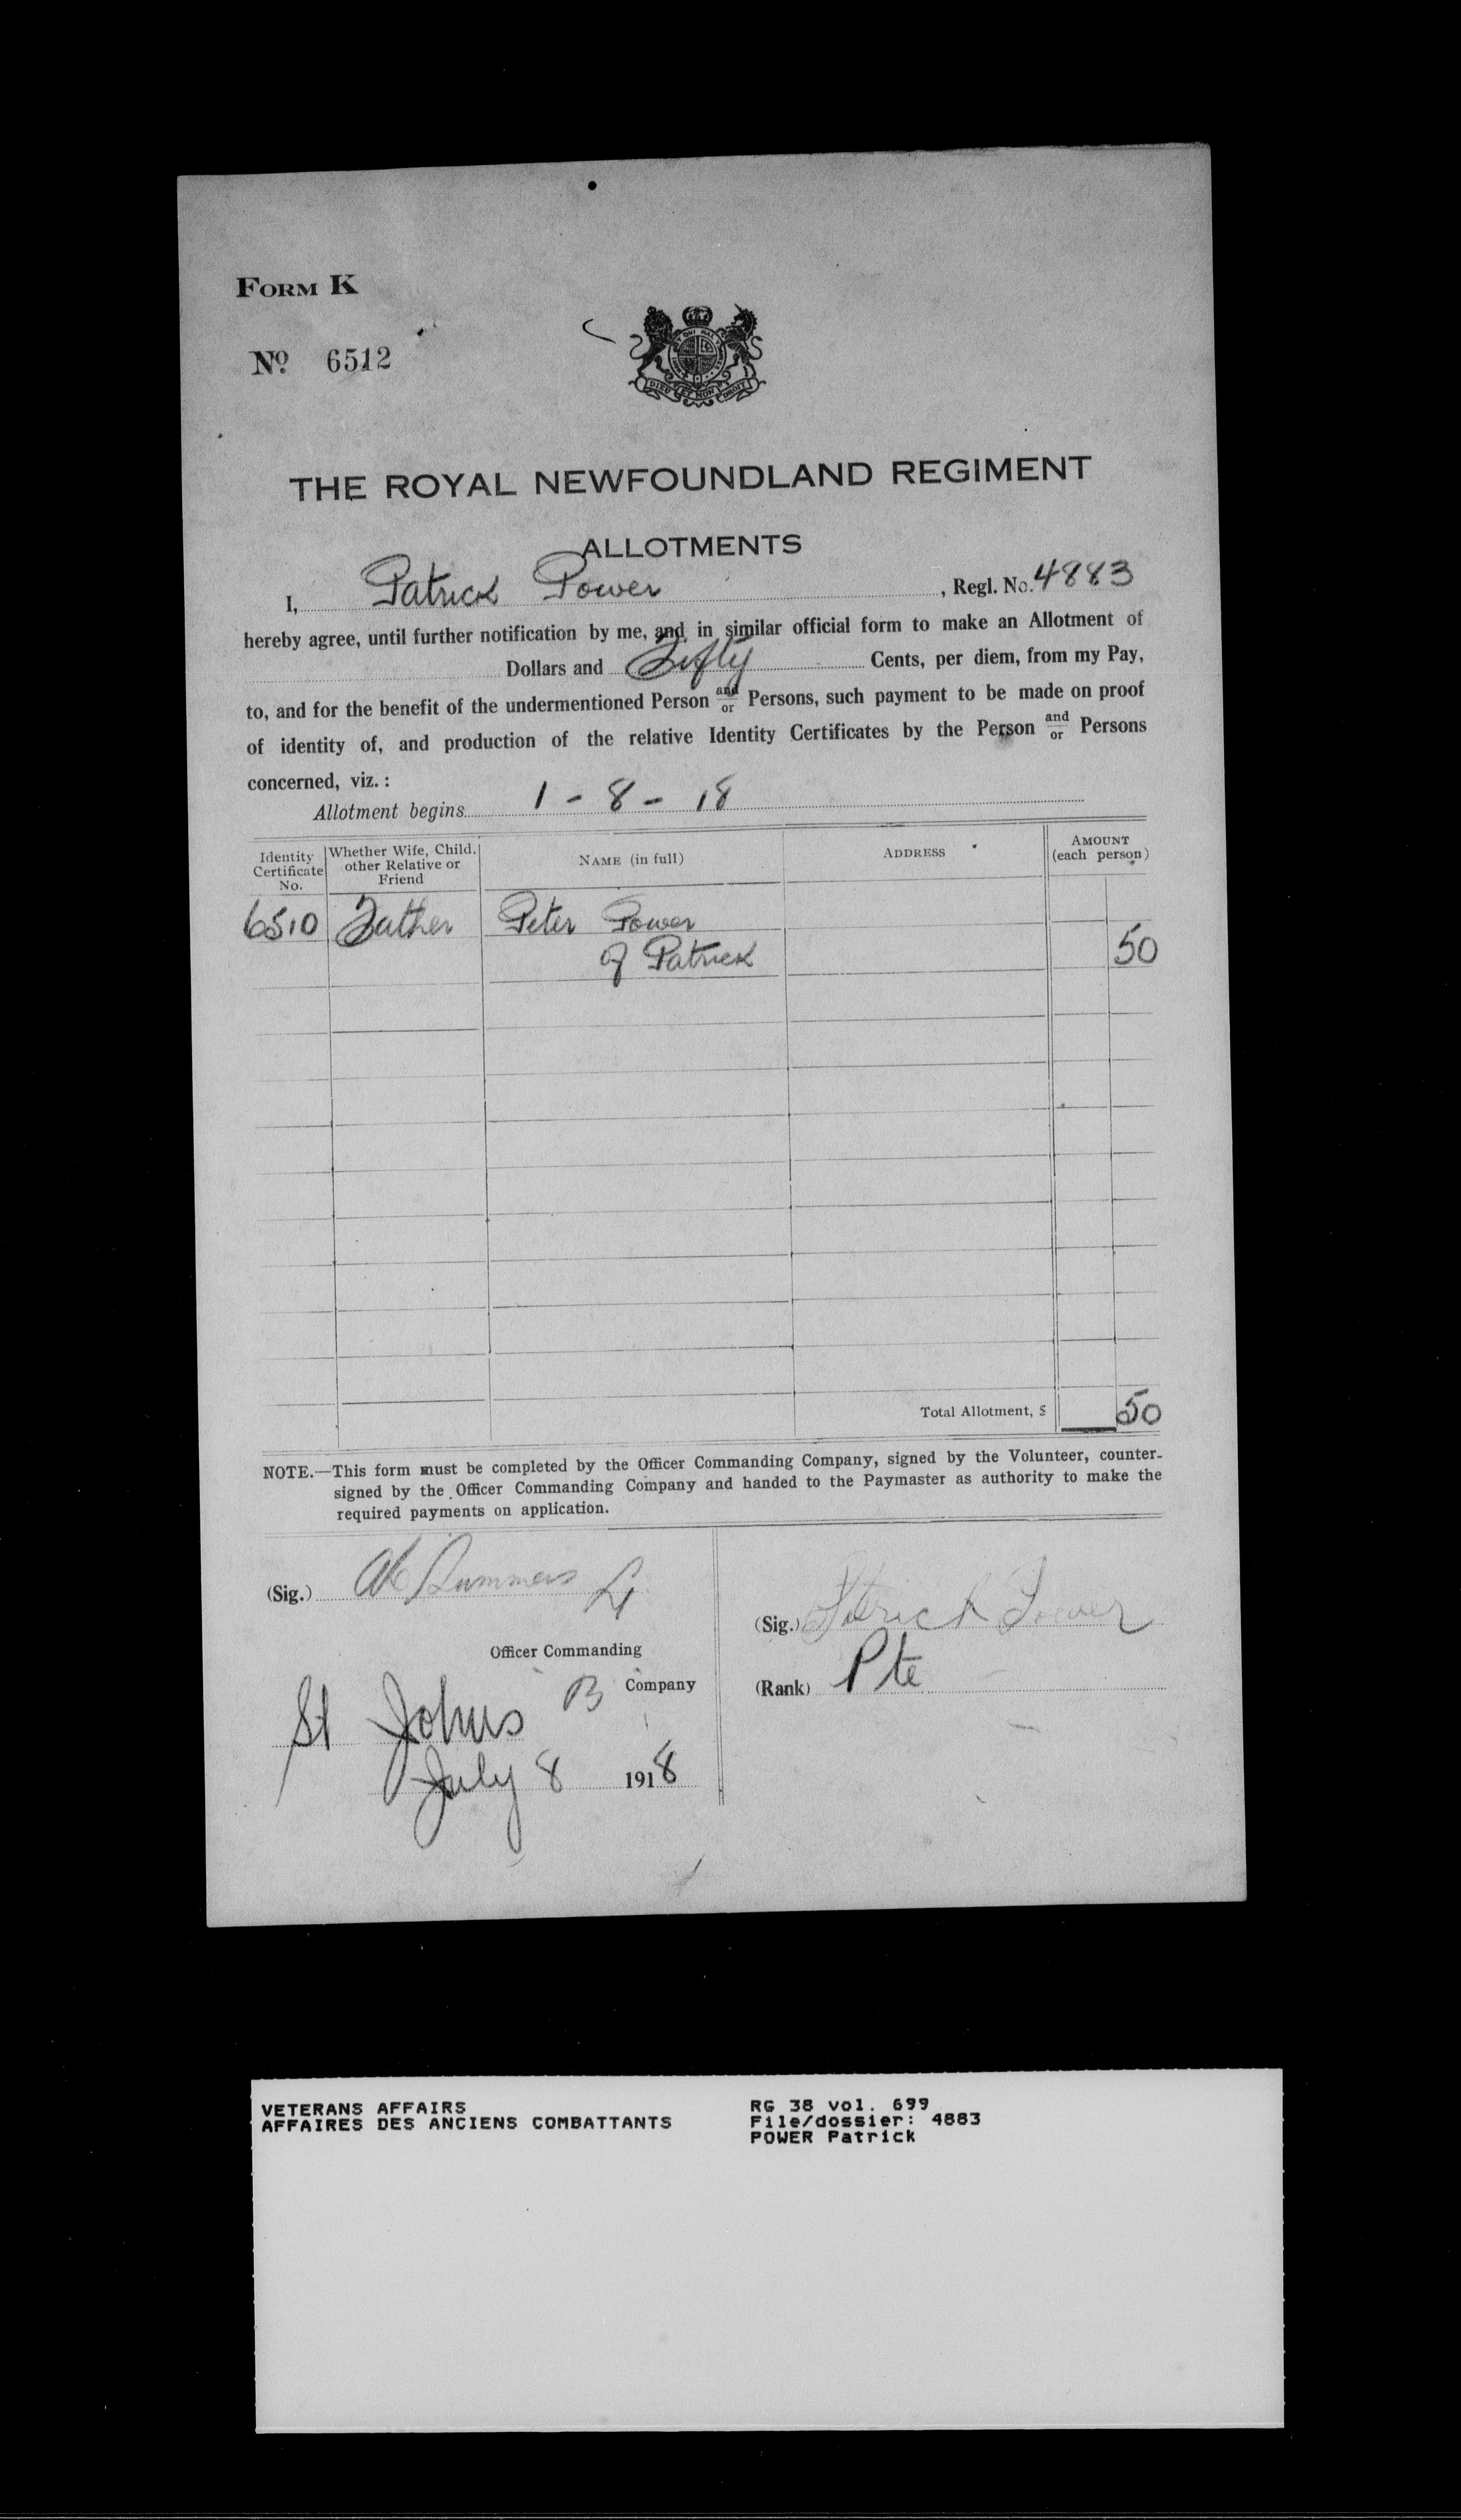 FORM K
No. 6512
DIEU ET MON DROIT
THE ROYAL NEWFOUNDLAND REGIMENT
ALLOTMENTS
I, Patrick Power, Regl. No. 4883
hereby agree, until further notification by me, and in similar official form to make an Allotment of
Dollars and Fifty Cents, per diem, from my Pay,
to, and for the benefit of the undermentioned Person and/or Persons, such payment to be made on proof
of identity of, and production of the relative Identity Certificates by the Person and/or Persons
concerned, viz.:
Allotment begins 1 - 8 - 18
Identity Certificate No. Whether Wife, Child, other Relative or Friend NAME (in full) ADDRESS AMOUNT (each person)
6510 Father Peter Power
of Patrick 50
Total Allotment, $ 50
NOTE.—This form must be completed by the Officer Commanding Company, signed by the Volunteer, counter-
signed by the Officer Commanding Company and handed to the Paymaster as authority to make the
required payments on application.
(Sig.) Summers Lt
(Sig.) Patrick Power
Officer Commanding
B Company
(Rank) Pte
St Johns
July 8 1918
VETERANS AFFAIRS
AFFAIRES DES ANCIENS COMBATTANTS
RG 38 vol. 699
File/dossier: 4883
POWER Patrick